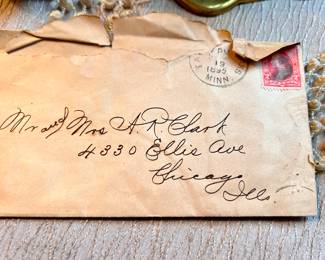 19
1895
MINN.
Mr and Mrs A. R. Clark
4330 Ellis Ave
Chicago
Ills.